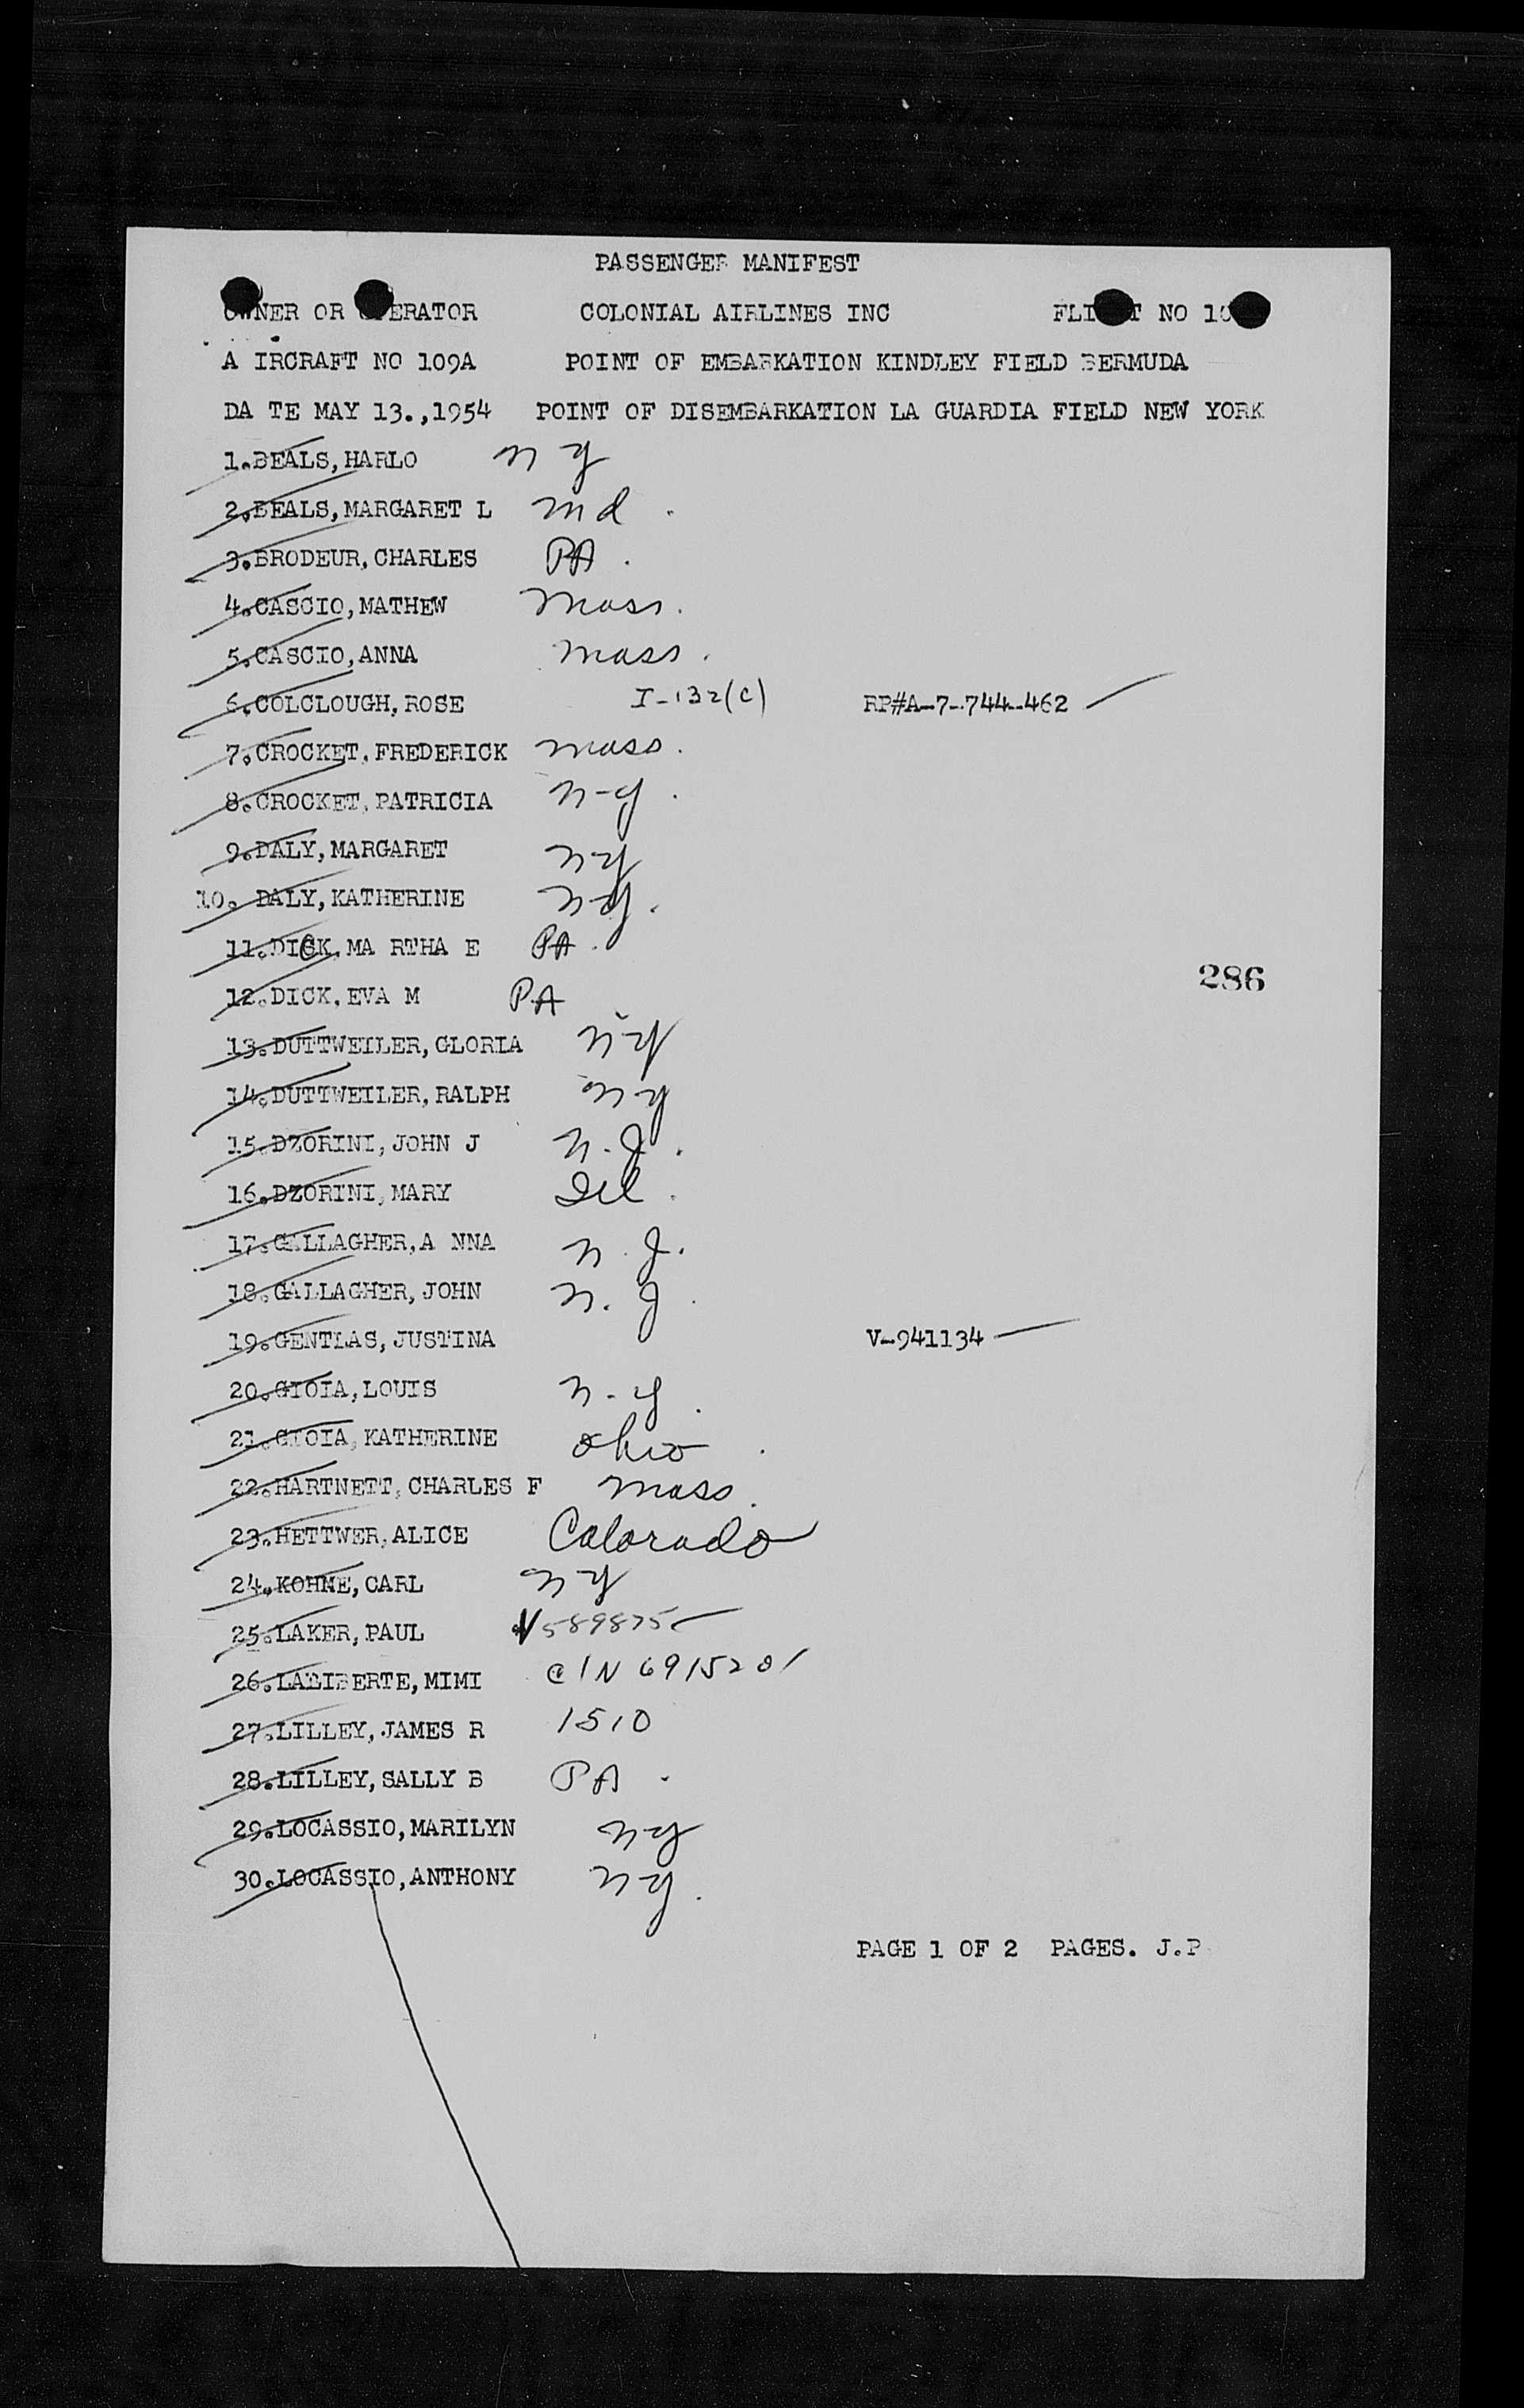 PASSENGER MANIFEST
OWNER OR OPERATOR COLONIAL AIRLINES INC FLIGHT NO
A IRCRAFT NO 109A POINT OF EMBARKATION KINDLEY FIELD BERMUDA
DA TE MAY 13.,1954 POINT OF DISEMBARKATION LA GUARDIA FIELD NEW YORK
1.BEALS,HARLO N Y
2.BEALS,MARGARET L Md.
3.BRODEUR,CHARLES PA.
4.CASCIO,MATHEW Mass.
5.CASCIO,ANNA Mass.
6.COLCLOUGH,ROSE I-132(C) RP#A-7-744-462
7.CROCKET,FREDERICK Mass.
8.CROCKET,PATRICIA N-Y.
9.DALY,MARGARET N-Y
10. DALY,KATHERINE N-Y.
11.DICK,MA RTHA E PA.
12.DICK,EVA M PA
286
13.DUTTWEILER,GLORIA N-Y
14.DUTTWEILER,RALPH N-Y
15.DZORINI,JOHN J N.J.
16.DZORINI,MARY
17.GALLAGHER,A NNA N.J.
18.GALLAGHER,JOHN N.J.
19.GENTLAS,JUSTINA V-941134
20.GIOIA,LOUIS N-Y.
21.GIOIA,KATHERINE Ohio.
22.HARTNETT,CHARLES F Mass.
23.HETTWER,ALICE Colorado
24.KOHNE,CARL N Y
25.LAKER,PAUL V589875
26.LALIBERTE,MIMI C/N 6915201
27.LILLEY,JAMES R 1510
28.LILLEY,SALLY B PA.
29.LOCASSIO,MARILYN N-Y
30.LOCASSIO,ANTHONY N-Y.
PAGE 1 OF 2 PAGES. J.P